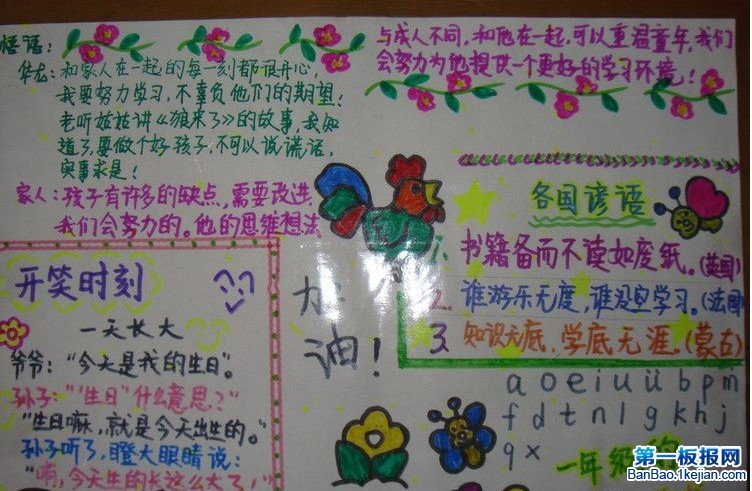 悟语：
华龙：和家人在一起的每一刻都很开心，
我要努力学习，不辜负他们的期望！
老听姑姑讲《狼来了》的故事，我知
道了，要做个好孩子，不可以说谎话，
实事求是！
家人：孩子有许多的缺点，需要改进
我们会努力的。他的思维想法
与成人不同，和他在一起，可以重温童年，我们
会努力为他提供一个更好的学习环境！
开笑时刻
一天长大
爷爷："今天是我的生日"。
孙子："'生日'什么意思？"
"生日嘛，就是今天出生的。"
孙子听了，瞪大眼睛说：
今天生的长这么大了！"
加
油！
各国谚语
1. 书籍备而不读如废纸。(英国)
2. 谁游乐无度，谁没空学习。(法国
3. 知识无底，学底无涯。(蒙古)
a o e i u ü b p m
f d t n l g k h j
q x
一年级的
第一板报网
BanBao.1kejian.com